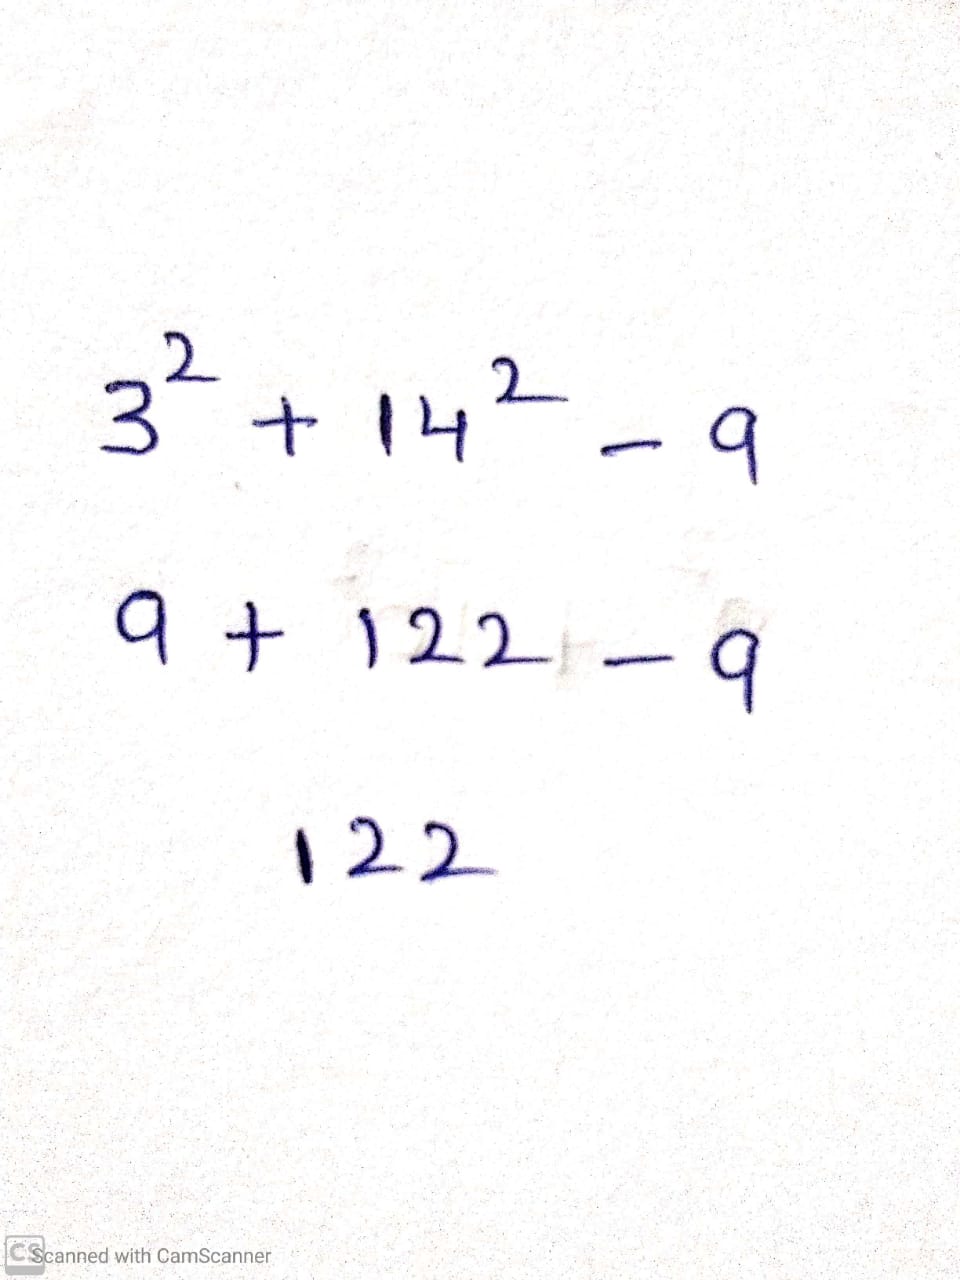 3² + 14² - 9
9 + 122 - 9
122
CS Scanned with CamScanner